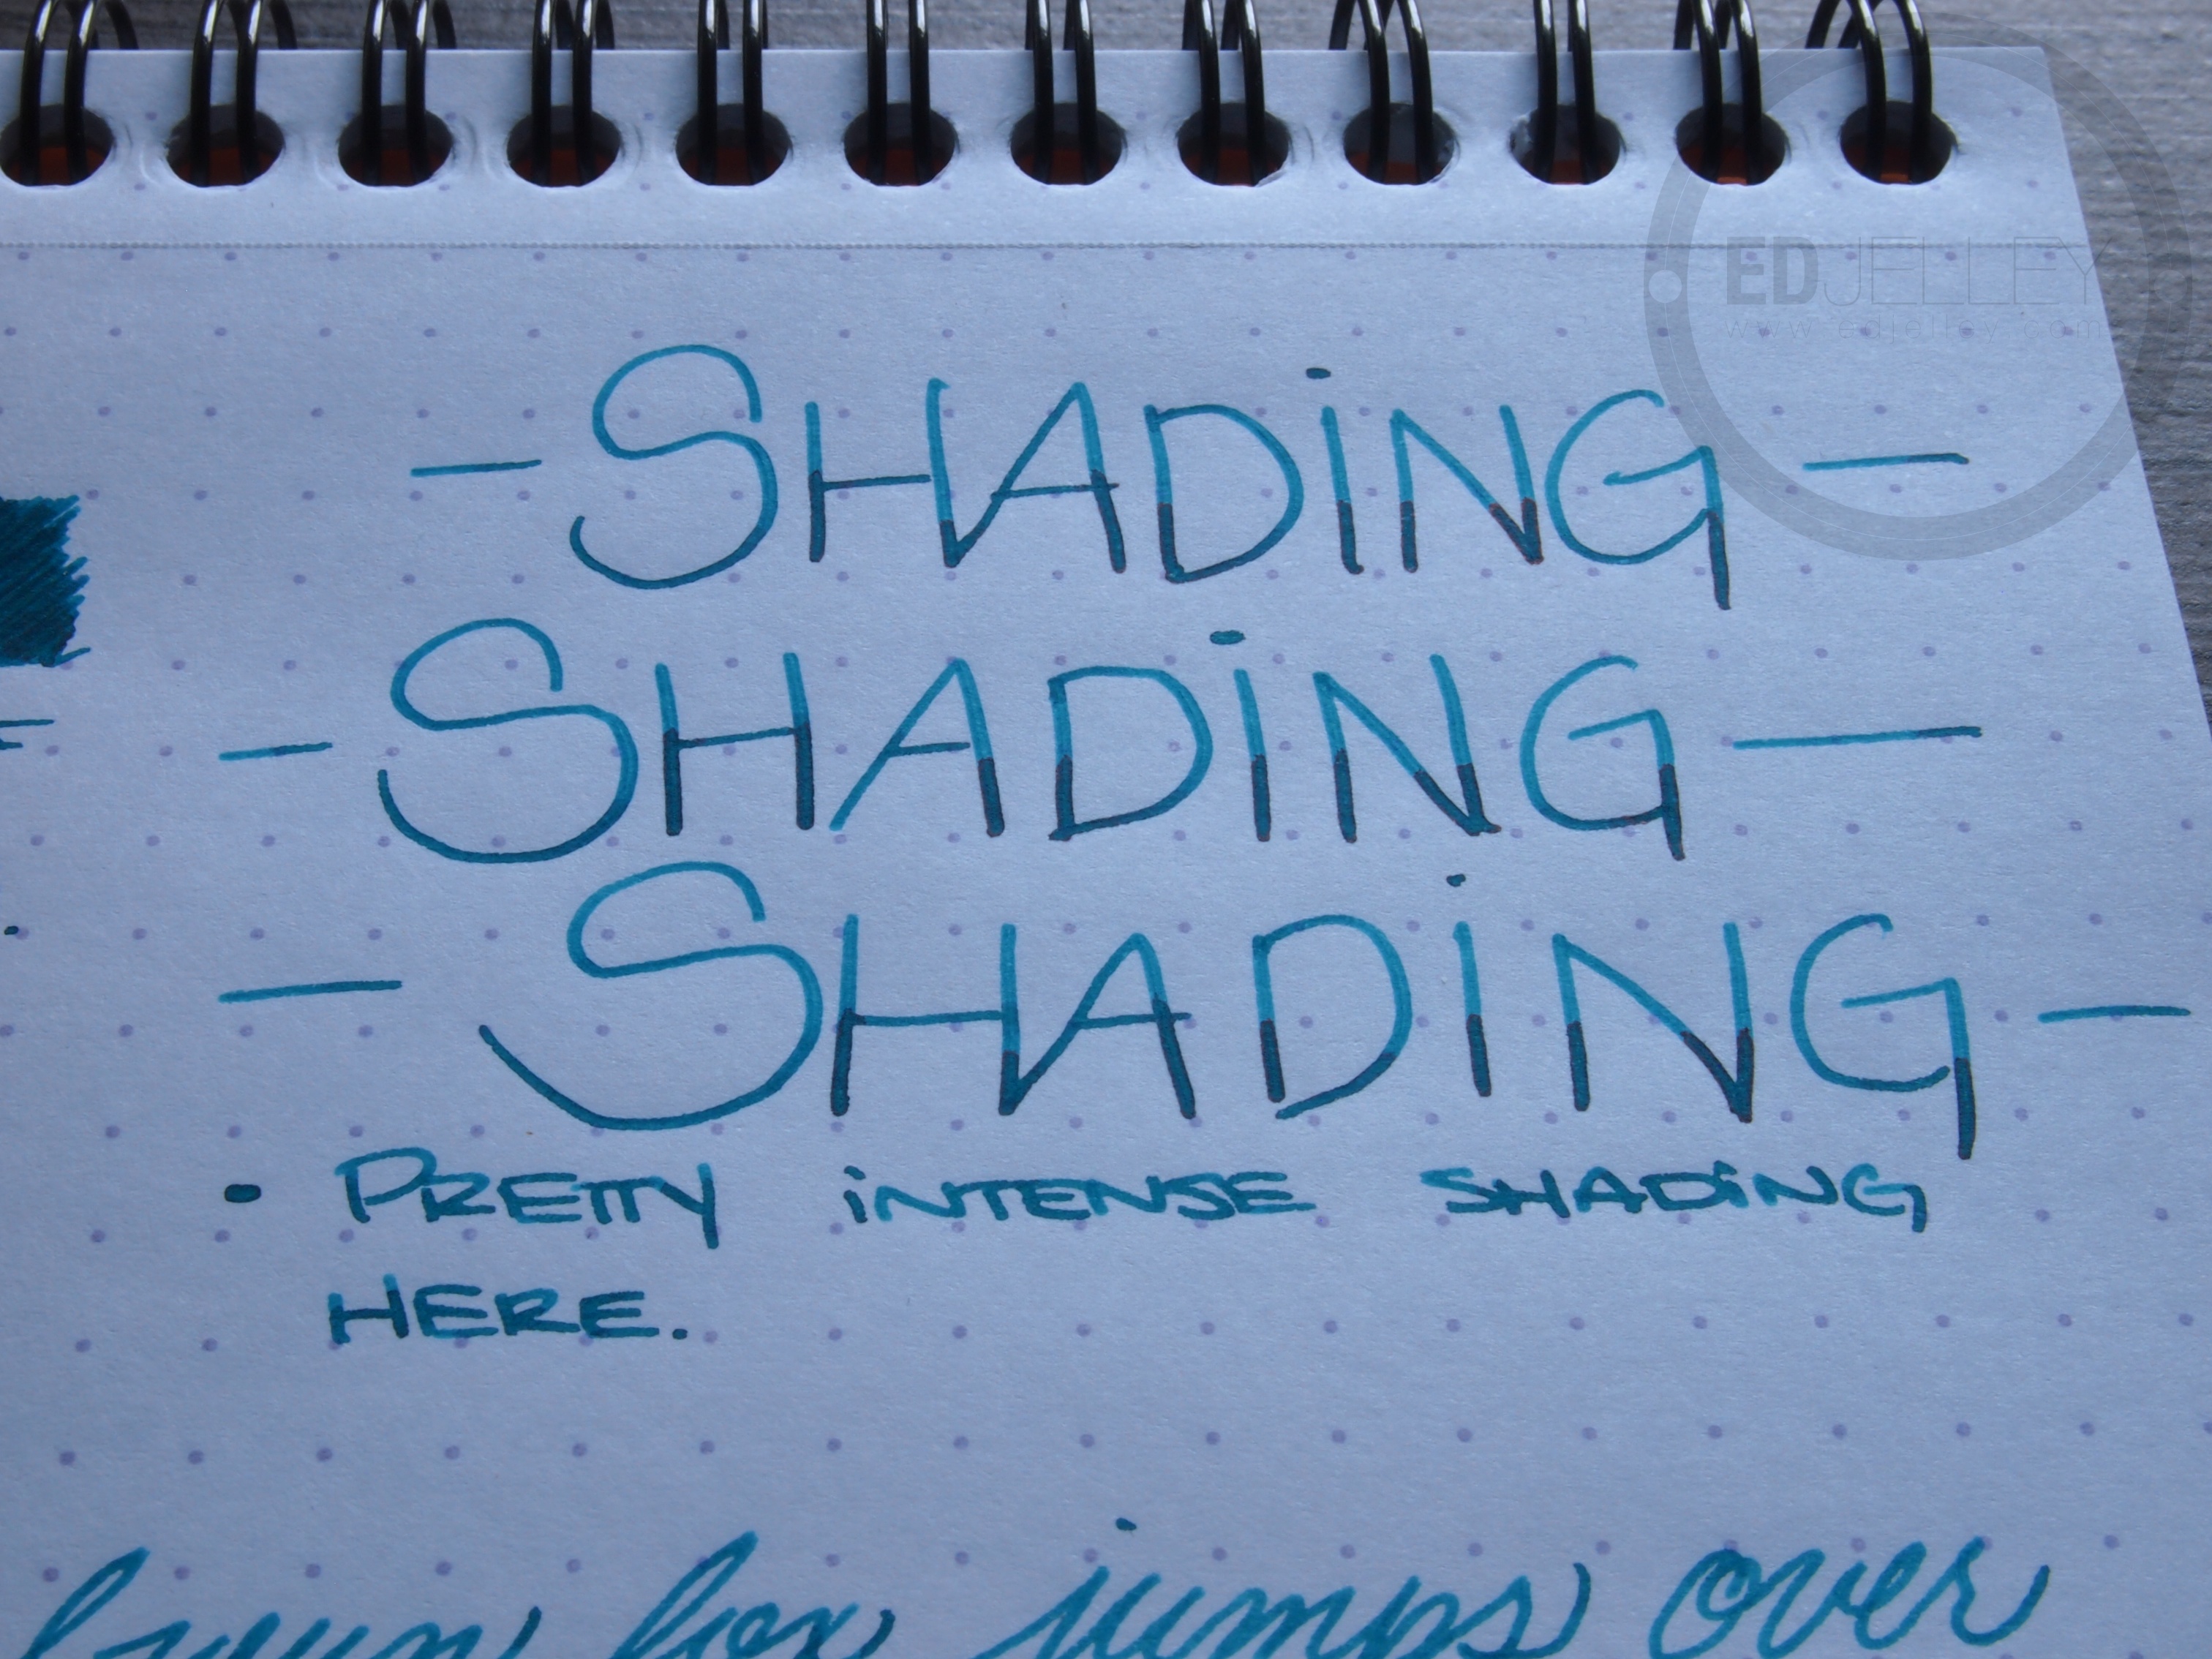 EDJELLEY
www.edjelley.com
- SHADiNG -
- SHADiNG -
- SHADiNG -
• PRETTY iNTENSE SHADiNG
HERE.
brown fox jumps over